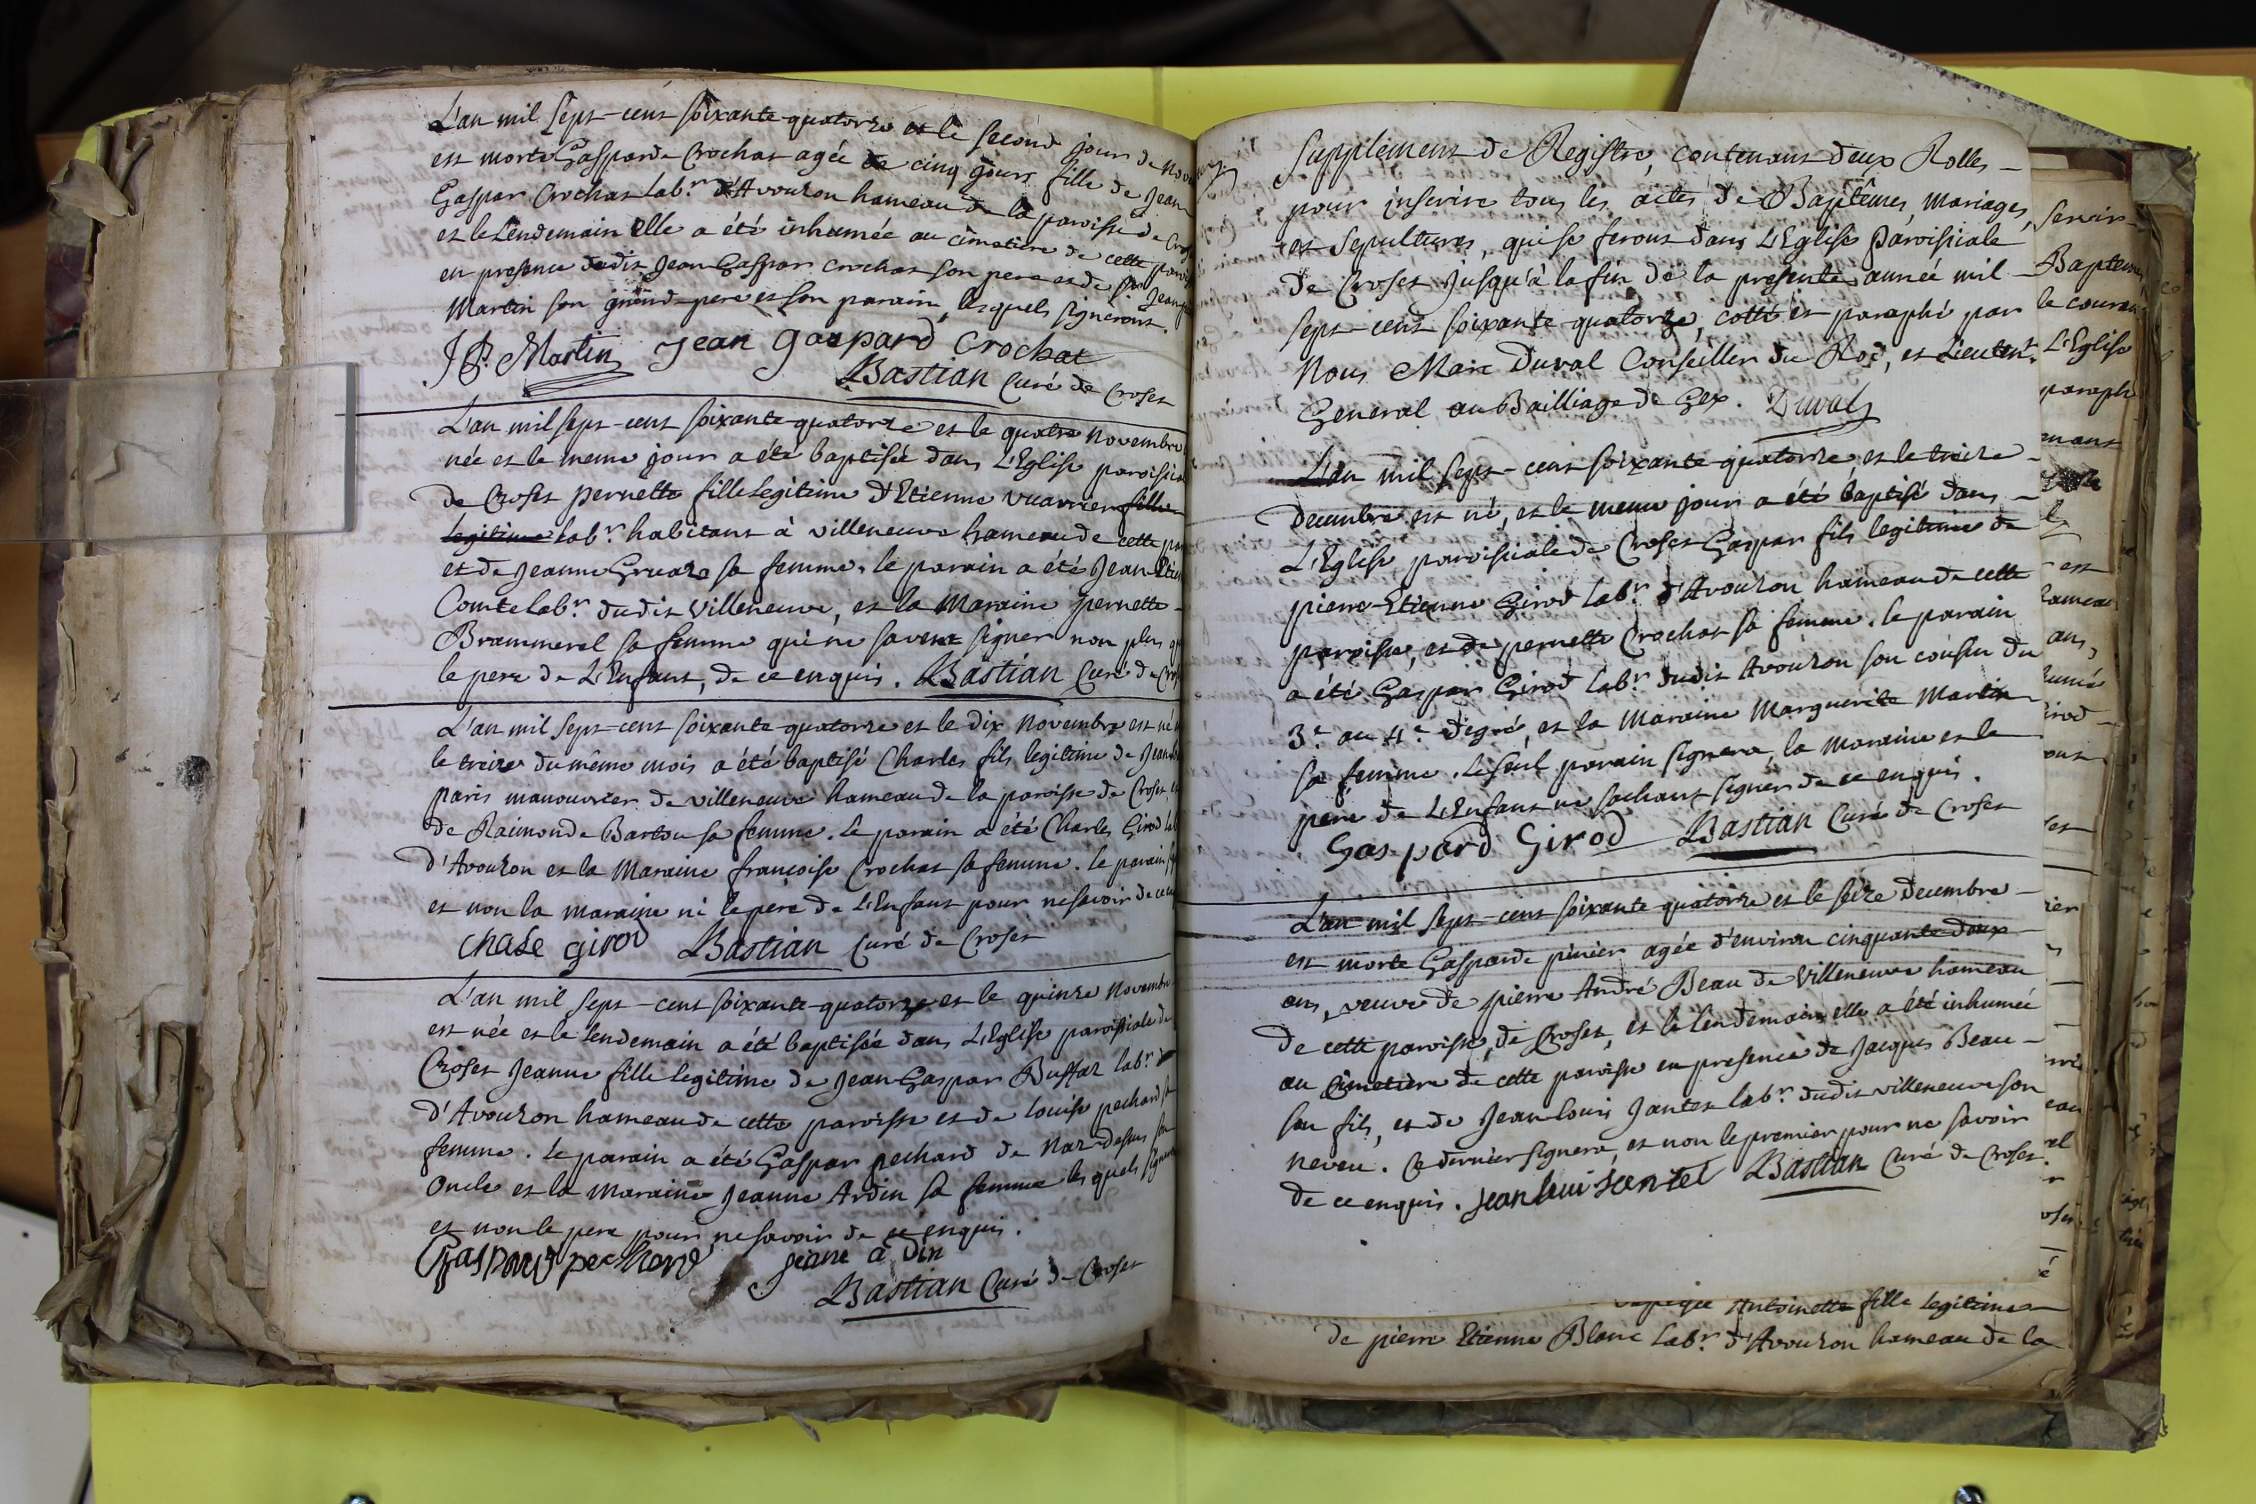 L'an mil sept-cent soixante-quatorze et le second jour de nov
est morte Gasparde Crochat agée de cinq jours fille de Jean
Gaspar Crochat labr d'Avouzon hameau de la paroisse de Croz
et le Lendemain elle a été inhumée au cimetiere de cette paroi
en presence dudit Jean Gaspar Crochat son pere et de Jean
Martin son grand-pere et son parain, lesquels signeront.
J P. Martin Jean Gaspard Crochat
Bastian Curé de Croset
L'an mil sept-cent soixante-quatorze et le quatre Novembre
née et le meme jour a été baptisée dans L'Eglise paroissia
de Croset Pernette fille legitime d'Etienne Vuarrier fille
legitime labr habitant à Villeneuve hameau de cette pa
et de Jeanne Gruaz sa femme. le parain a été Jean Etie
Comte labr dudit Villeneuve, et la Maraine pernette
Brammerel sa femme qui ne savent signer non plus q
le pere de L'Enfant, de ce enquis. Bastian Curé de Cro
L'an mil sept-cent soixante-quatorze et le dix Novembre est né
le treize du même mois a été baptisé Charles fils legitime de Jean
Paris manouvrier de Villeneuve hameau de la paroisse de Croset
de Raimonde Barton sa femme. Le parain a été Charles Girod lab
d'Avouzon et la Maraine françoise Crochat sa femme. le parain
et non la maraine ni le père de L'Enfant pour ne savoir de ce en
Chale Girod Bastian Curé de Croset
L'an mil sept-cent soixante-quatorze et le quinze Novembre
est née et le Lendemain a été baptisée dans L'Eglise paroissiale de
Croset Jeanne fille legitime de Jean Gaspar Buffaz labr
d'Avouzon hameau de cette paroisse et de louise pechard sa
femme. le parain a été Gaspar pechard de Naz dessus son
Oncle et la Maraine Jeanne Ardin sa femme lesquels signe
et non le pere pour ne savoir de ce enquis.
Gaspard pechard Jeane a din
Bastian Curé de Croset
Supplement de Registre, contenant deux Rolles
pour inscrire tous les actes de Baptêmes, mariages,
et Sepultures, qui se feront dans L'Eglise Paroissiale
de Croset jusqu'à la fin de la presente année mil
sept-cent soixante-quatorze, cotté et paraphé par
Nous Marc Duval Conseiller du Roi, et Lieutent
General au Bailliage de Gex. Duval
L'an mil sept-cent soixante-quatorze et le treize
Decembre est né, et le meme jour a été baptisé dans
L'Eglise paroissiale de Croset Gaspar fils legitime de
pierre-Etienne Girod labr d'Avouzon hameau de cette
paroisse, et de pernette Crochat sa femme. le parain
a été Gaspar Girod labr dudit Avouzon son cousin du
3e au 4e degré, et la Maraine Marguerite Martin
sa femme. le seul parain signera, la maraine et le
pere de L'Enfant ne sachant signer de ce enquis.
Gaspard Girod Bastian Curé de Croset
L'an mil sept-cent soixante quatorze et le seize decembre
est morte Gasparde pinier agée d'environ cinquante deux
ans, veuve de pierre André Beau de Villeneuve hameau
de cette paroisse, de Croset, et le Lendemain elle a été inhumée
au Cimetiere de cette paroisse en presence de Jacques Beau
son fils, et de Jean louis Jantet labr dudit Villeneuve son
neveu. Ce dernier signera, et non le premier pour ne savoir
de ce enquis. Jean loui Jantet Bastian Curé de Croset.
Antoinette fille legitime
de pierre Etienne Blanc labr d'Avouzon hameau de la
servir
Bapteme
le couran
L'Eglise
paraph